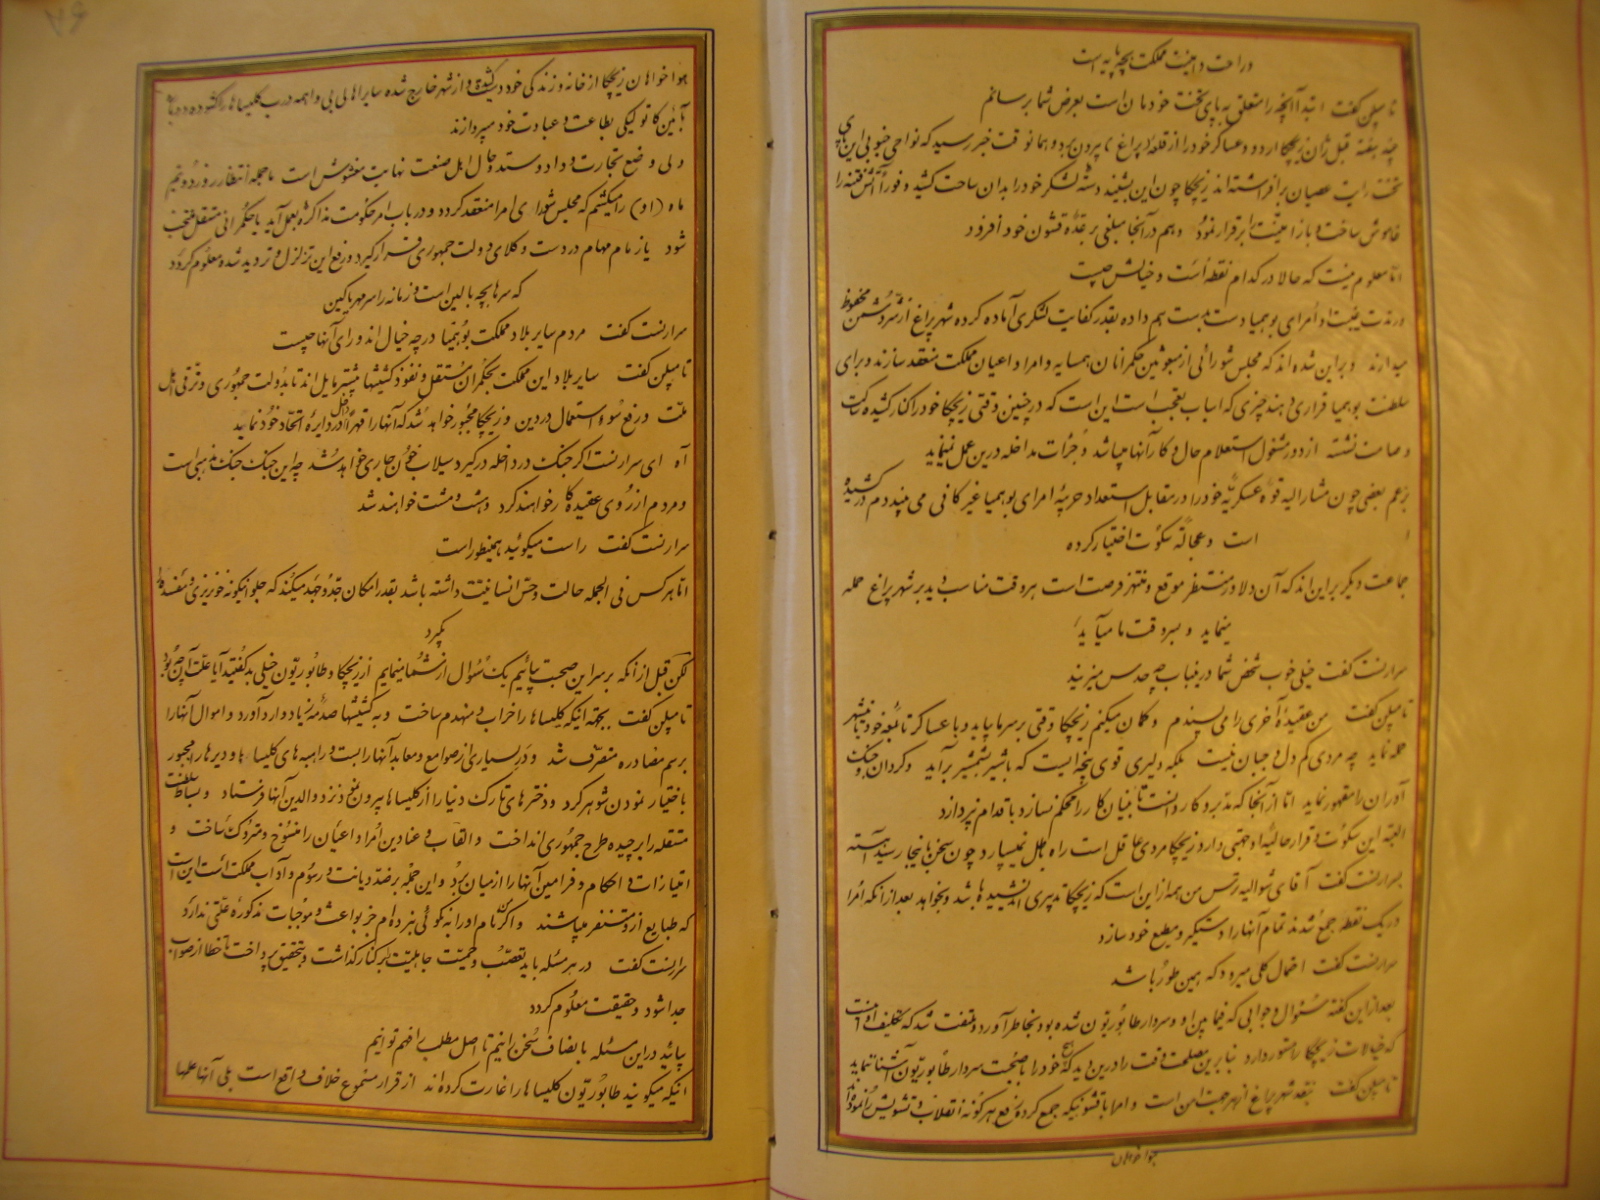 و راحت و امنیت مملکت بچه پایه است
تامپلن گفت ابتدا آنچه را متعلق به پای تخت خودمان است بعرض شما برسانم
چند هفته قبل ژان زیچکا اردو و عساکر خود را از قلعه پراغ بیرون برد و همانوقت خبر رسید که نواحی جنوبی این پای
تخت رایت عصیان برافراشته اند زیچکا چون این بشنید دسته لشکر خود را بدان ساحت کشید و فوراً آتش فتنه را
خاموش ساخت و باز امنیت را برقرار نمود و هم در آنجا مبلغی بر عده قشون خود افزود
اما معلوم نیست که حالا در کدام نقطه است و خیالش چیست
در مدت غیبت او امرای بوهمیا دست بدست هم داده بقدر کفایت لشکری آماده کرده شهر پراغ از شر دشمن محفوظ
میدارند و بر این شده اند که مجلس شورائی از مبعوثین حکمرانان همسایه و امراء و اعیان مملکت منعقد سازند و برای
سلطنت بوهمیا قراری دهند چیزی که اسباب تعجب است این است که در چنین وقتی زیچکا خود را کنار کشیده ساکت
و صامت نشسته از دور مشغول استعلام حال و کار آنها میباشد و جرأت مداخله درین عمل نمینماید
بزعم بعضی چون مشارالیه قوه عسکریه خود را در مقابل استعداد حربیه امرای بوهمیا غیر کافی می بیند دم در کشیده
است و عجالة سکوت اختیار کرده
جماعت دیگر بر این اند که آن دلاور منتظر موقع و منتهز فرصت است هر وقت مناسب دید بر شهر پراغ حمله
مینماید و بسر وقت ما میآید
سرارنست گفت خیلی خوب شخص شما در ینباب چه حدس میزنید
تامپلن گفت من عقیده آخری را می پسندم و گمان میکنم زیچکا وقتی بر سر ما بیاید و با عساکر تابعه خود باین شهر
حمله نماید چه مردی کم دل و جبان نیست بلکه دلیری قوی پنجه ایست که با شیر بشمشیر برآید و گردان و جنک
آوران را مقهور نماید اما از آنجا که مدبر و کاردانست تا بنیان کار را محکم نسازد باقدام نپردازد
البته این سکوت و قرار حالیه او جهتی دارد زیچکا مردی عاقل است راه جهل نمیسپارد چون سخن باینجا رسید آهسته
بسرارنست گفت آقای شوالیه ترس من همه از این است که زیچکا تدبیری اندیشیده باشد و بخواهد بعد از آنکه امرا
در یک نقطه جمع شدند تمام آنها را دستگیر و مطیع خود سازد
سرارنست گفت احتمال کلی میرود که همین طور باشد
بعد از این گفته سئوال و جوابی که فیما بین او و سردار طابوریتون شده بود بخاطر آورد و ملتفت شد که تکلیف او آنست
که خیالات زیچکا را مستور دارد بنا برین مصلحت وقت را درین دید که خود را بصحبت سردار طابوریتون آشنا ننماید
تامپلن گفت بعقیده شهر پراغ از هر جهت امن است و امرا با قشونیکه جمع کرده رفع هر گونه انقلاب و تشویش را نموده اند
هوا خواهان
هواخواهان زیچکا از خانه و زندگی خود دست کشیده و از شهر خارج شده سایر اهالی بی واهمه درب کلیساها را گشوده دوباره
بآئین کاتولیکی بطاعت و عبادت خود میپردازند
ولی وضع تجارت و داد و ستد و حال اهل صنعت نهایت مغشوش است ما همه انتظار روز دویم
ماه (اوت) را میکشیم که مجلس شورای امرا منعقد گردد و در باب امر حکومت مذاکره بعمل آید یا حکمرانی مستقل منتخب
شود یا زمام مهام در دست وکلای دولت جمهوری قرار گیرد و رفع این تزلزل و تردید شده معلوم گردد
که سرها بچه بالین است و زمانه را سر مهر یا کین
سرارنست گفت مردم سایر بلاد مملکت بوهمیا در چه خیال اند و رای آنها چیست
تامپلن گفت سایر بلاد این مملکت بحکمران مستقل و نفوذ کشیشها بیشتر مایل اند تا بدولت جمهوری و ترقی اهل
ملت و رفع سوء استعمال در دین و زیچکا مجبور خواهد شد که آنها را قهراً داخل در دایره اتحاد خود نماید
آه ای سرارنست اگر جنک در داخله درگیرد سیلاب خون جاری خواهد شد چه این جنک جنک مذهبی است
و مردم از روی عقیده کار خواهند کرد و هشت و مشت خواهند شد
سرارنست گفت راست میگوئید همینطور است
اما هر کس فی الجمله حالت و حس انسانیت داشته باشد بقدر امکان جد و جهد میکند که جلو اینگونه خونریزی و مفسده را
بگیرد
لکن قبل از آنکه بر سر این صحبت بیائیم یک سؤال از شما مینمایم از زیچکا و طابوریتون خیلی بد گفتید آیا علت آن چه بود
تامپلن گفت بجهة اینکه کلیساها را خراب و منهدم ساخت و به کشیشها صدمه زیاد وارد آورد و اموال آنها را
برسم مصادره متصرف شد و در بسیاری از صوامع و معابد آنها را بست و راهبه های کلیساها و دیرها را مجبور
باختیار نمودن شوهر کرد و دخترهای تارک دنیا را از کلیساها بیرون نمود نزد والدین آنها فرستاد و بساط سلطنت
مستقله را برچیده طرح جمهوری انداخت و القاب و عناوین امراء و اعیان را منسوخ و متروک ساخت و
امتیازات و احکام و فرامین آنها را از میان برد و این جمله بر ضد دیانت و رسوم و آداب مملکت ماست این است
که طبایع از او متنفر میباشند و اگر نام او را به نکوئی نبرده ام جز بواعث و موجبات مذکوره علتی ندارد
سرارنست گفت در هر مسئله باید تعصب و حمیت جاهلیت را بر کنار گذاشت و بتحقیق پرداخت تا خطا از صواب
جدا شود و حقیقت معلوم گردد
بیائید در این مسئله با انصاف سخن رانیم تا اصل مطلب را فهم توانیم
اینکه میگویند طابوریتون کلیساها را غارت کرده اند از قرار مسموع خلاف واقع است بلی آنها علمها